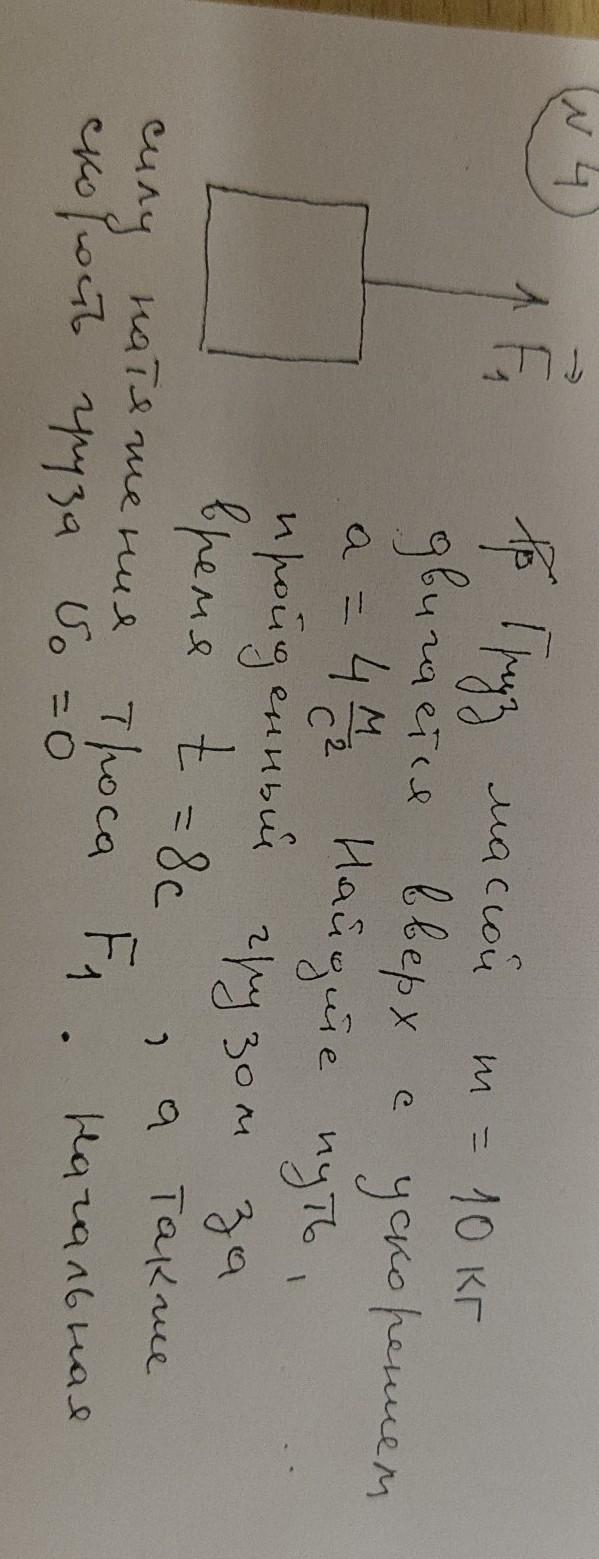 № 4
F₁
Груз массой m = 10 кг
двигается вверх с ускорением
a = 4 м/с² Найдите путь,
пройденный грузом за
время t = 8с, а также
силу натяжения троса F₁. Начальная
скорость груза υ₀ = 0